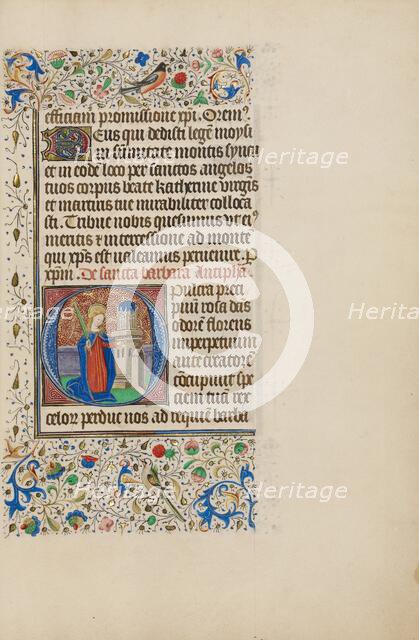 efficiam promissione xpi. Orem9
Deus qui dedisti legē moysi
in summitate montis synai
et in eodē loco per sanctos angelos
tuos corpus beate katherine virgīs
et martiris tue mirabiliter colloca
sti. Tribue nobis quesumus ut ei9
meritis et intercessione ad montē
qui xp̄s est valeamus pervenire. P
xpm̄. De sancta barbara Antiphā.
Pulcra preci
piū rosa das
odorē florens
in perpetuum
ante creatorē
cōcupivit spe
ciem tuā rex
celor perduc nos ad requiē barba
Heritage
Heritage
Heritage
Heritage
Heritage
Heritage